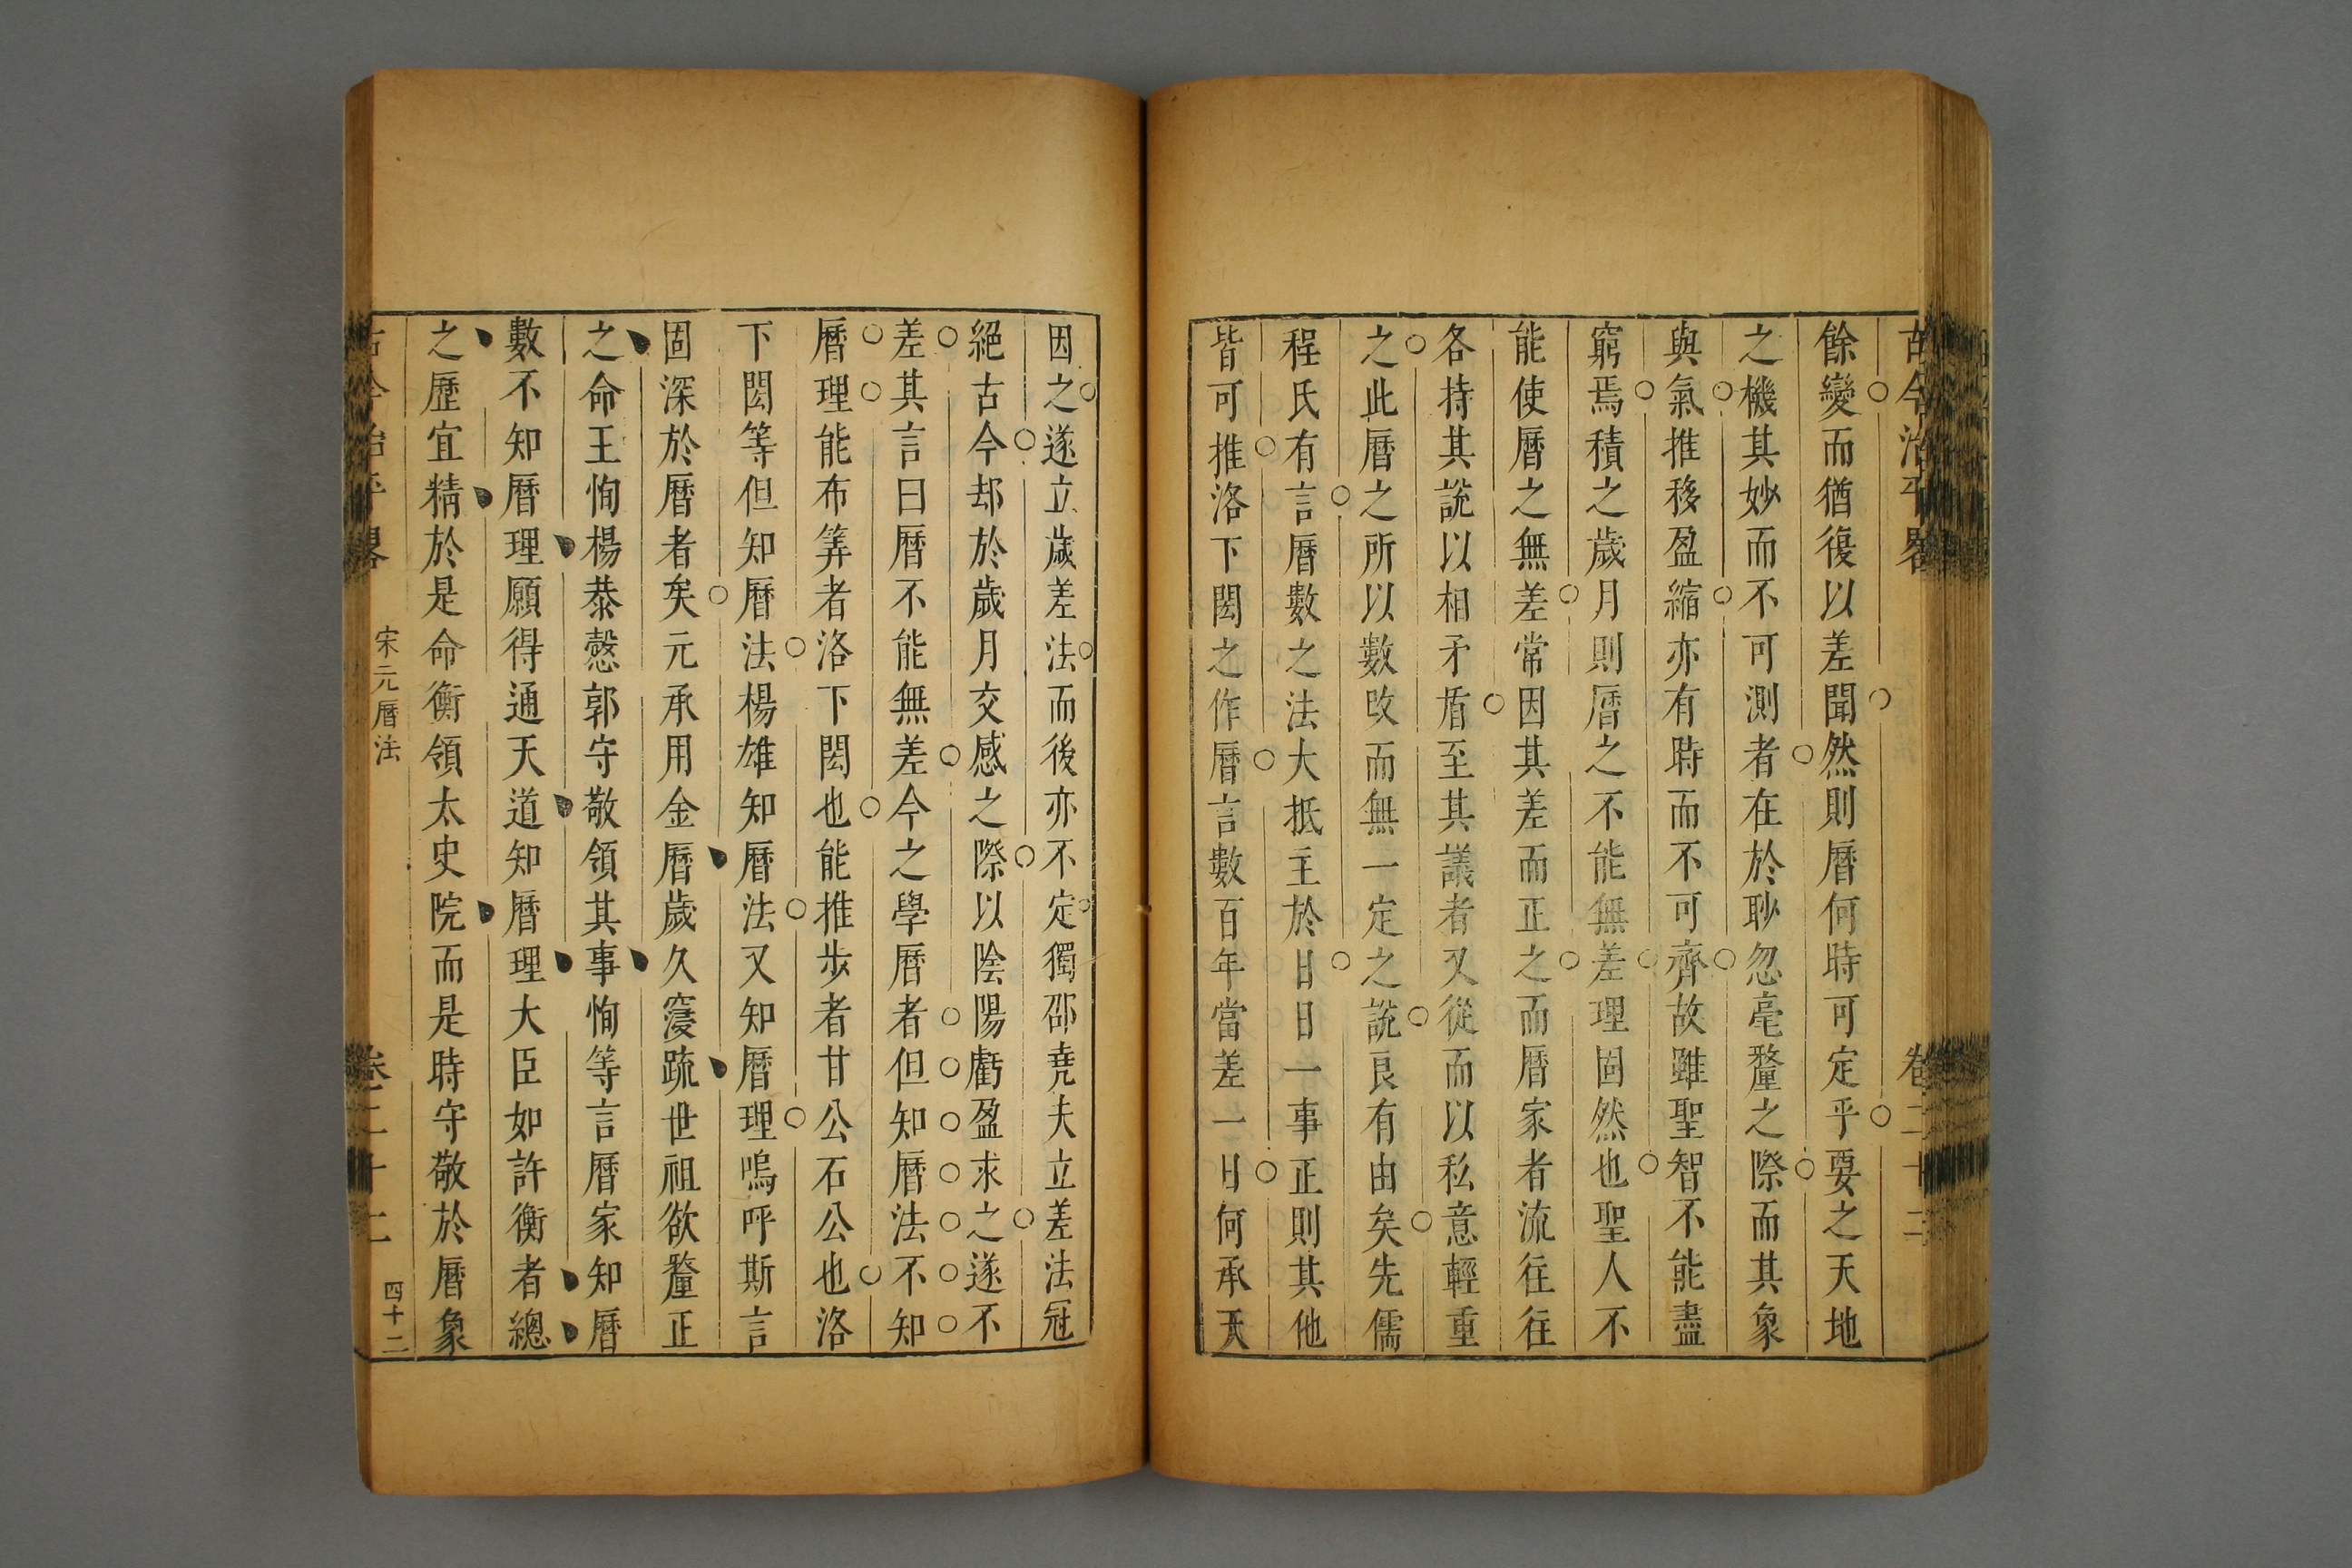 古今治平畧 卷二十二
餘變而猶復以差聞然則曆何時可定乎要之天地
之機其妙而不可測者在於眇忽毫釐之際而其象
與氣推移盈縮亦有時而不可齊故雖聖智不能盡
窮焉積之歲月則曆之不能無差理固然也聖人不
能使曆之無差常因其差而正之而曆家者流往往
各持其說以相矛盾至其議者又從而以私意輕重
之此曆之所以數改而無一定之說良有由矣先儒
程氏有言曆數之法大抵主於日日一事正則其他
皆可推洛下閎之作曆言數百年當差一日何承天
因之遂立歲差法而後亦不定獨邵堯夫立差法冠
絕古今却於歲月交感之際以陰陽虧盈求之遂不
差其言曰曆不能無差今之學曆者但知曆法不知
曆理能布筭者洛下閎也能推步者甘公石公也洛
下閎等但知曆法楊雄知曆法又知曆理嗚呼斯言
固深於曆者矣元承用金曆歲久寖疏世祖欲釐正
之命王恂楊恭懿郭守敬領其事恂等言曆家知曆
數不知曆理願得通天道知曆理大臣如許衡者總
之歷宜精於是命衡領太史院而是時守敬於曆象
古今治平畧 宋元曆法 卷二十二 四十二